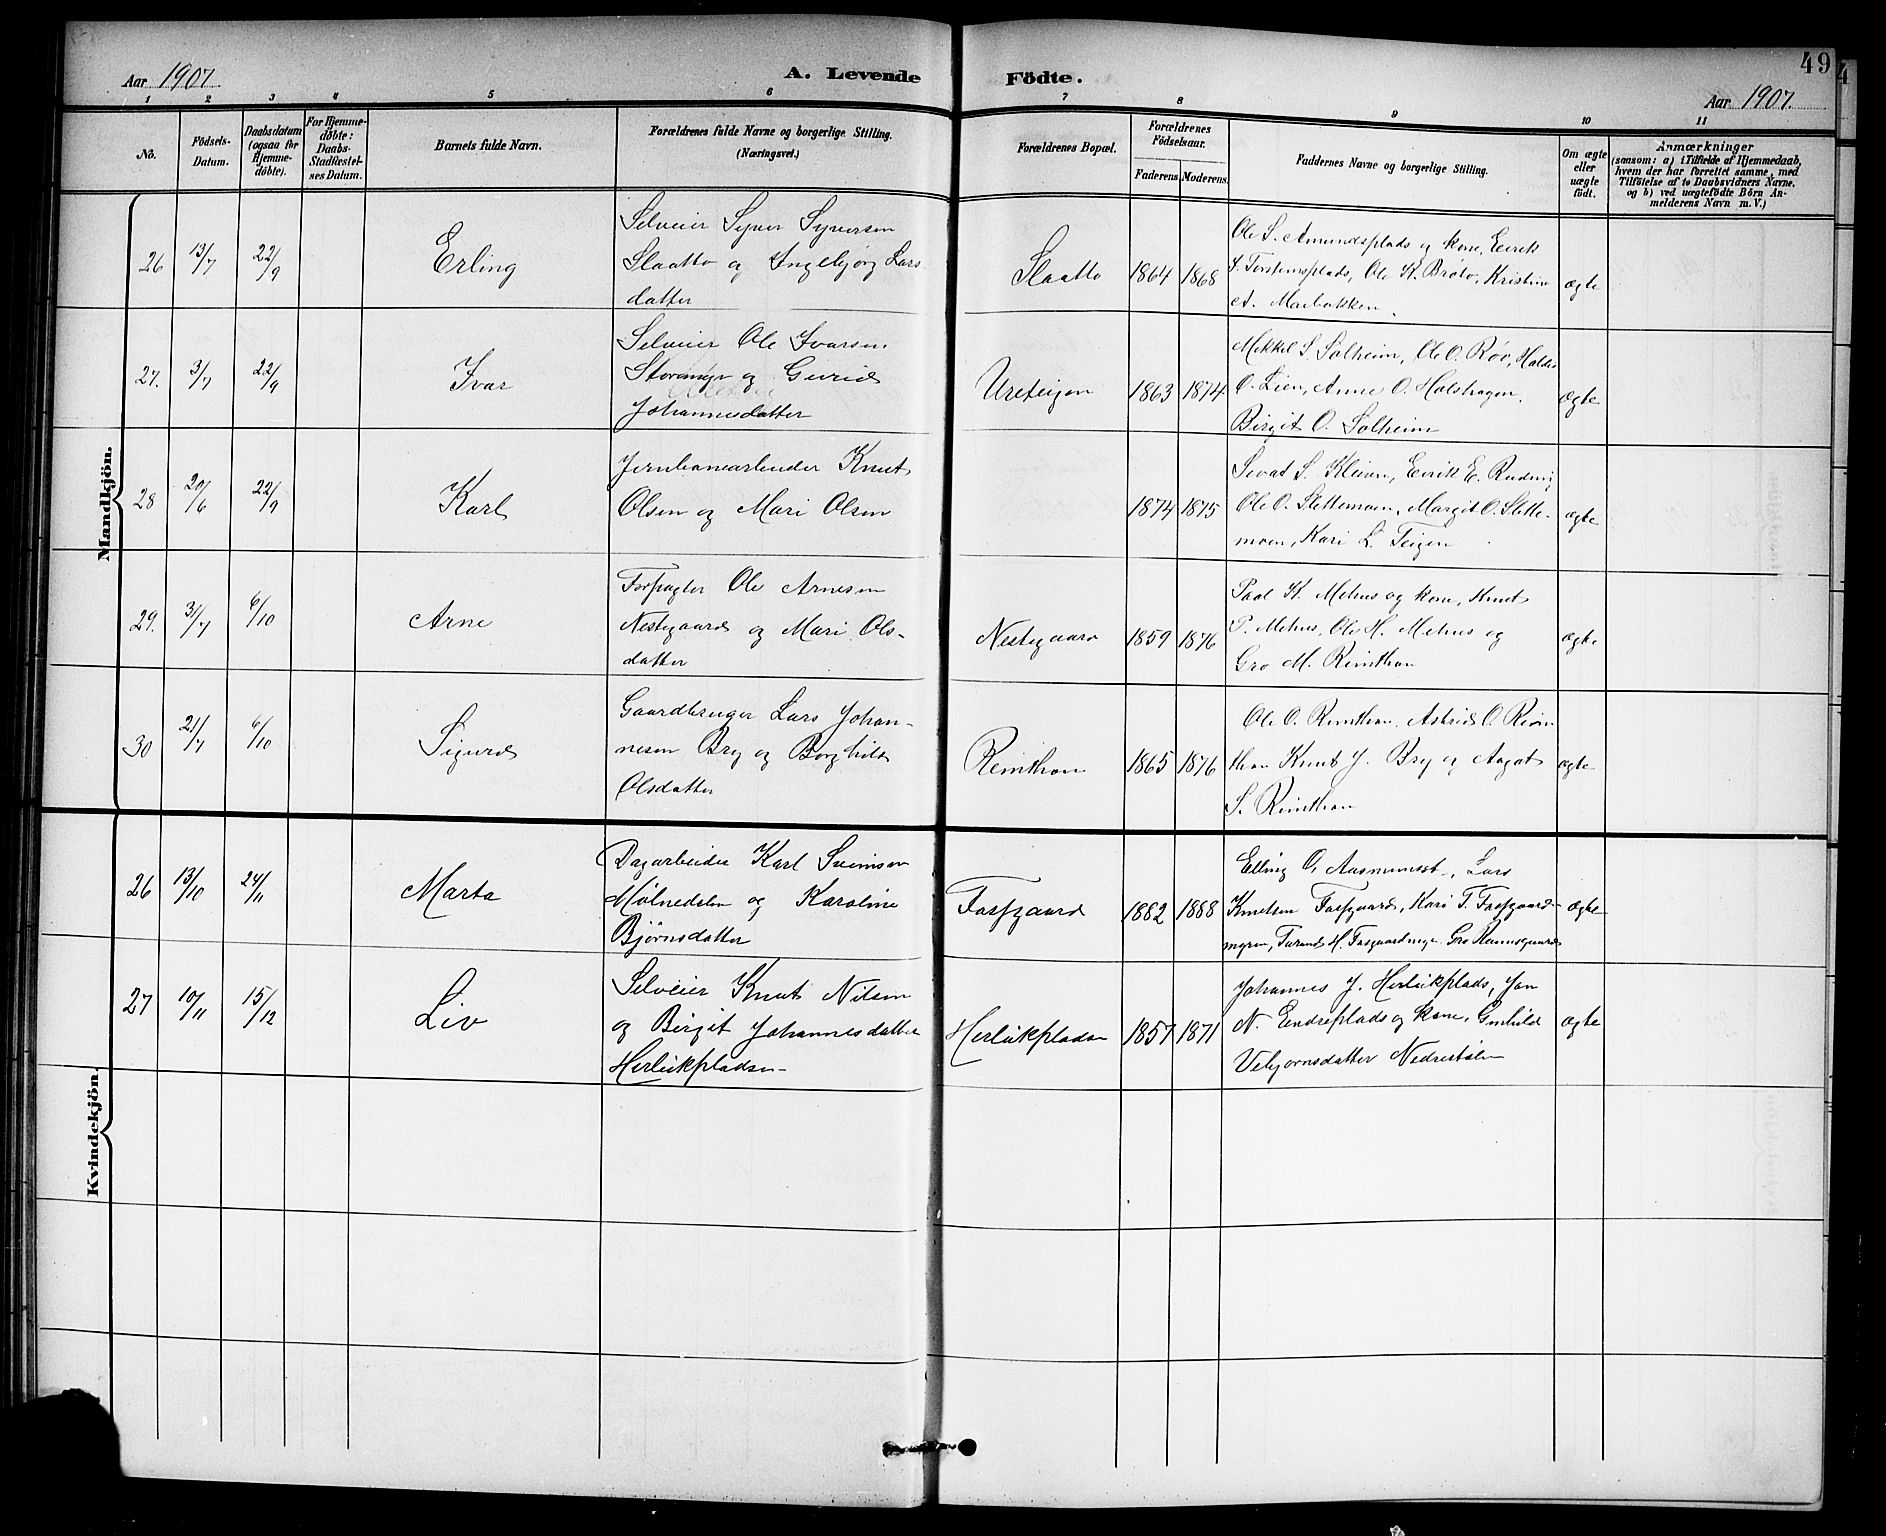 49
Aar 1907.
A. Levende
Födte.
Aar 1907.
1 2 3 4 5 6 7 8 9 10 11
No.
Födsels-
Datum.
Daabsdatum
(ogsaa for
Hjemme-
döbte).
For Hjemme-
döbte:
Daabs-
Stadfæstel-
ses Datum.
Barnets fulde Navn.
Forældrenes fulde Navne og borgerlige Stilling.
(Næringsvei.)
Forældrenes Bopæl.
Forældrenes
Födselsaar.
Faderens. Moderens.
Faddernes Navne og borgerlige Stilling.
Om ægte
eller
uægte
födt.
Anmærkninger
(saasom: a) i Tilfælde af Hjemmedaab,
hvem der har forrettet samme, med
Tilföielse af to Daabsvidners Navne,
og b) ved uægtefödte Börn An-
melderens Navn m. V.)
Mandkjön.
26 13/7 22/9 Erling
Selveier Syver Syversen
Slaatto og Ingebjørg Lars-
datter
Slaatto 1864 1868
Ole S. Amundsplads og kone, Eirik
S. Torsteinsplads, Ole K. Bråto, Kristine
A.
ægte
27. 3/7 22/9 Ivar
Selveier Ole Ivarsen
og Gurid
Johannesdatter
Ureteigen 1863 1874
Mekkel S. Solheim, Ole O. Røv,
O. Lien, Anne O.
Birgit O. Solheim
ægte
28 20/6 22/9 Karl
Jernbanearbeider Knut
Olsen og Mari Olsen
1874 1875
Sevat S. Kleiven, Eirik E.
Ole O. Slettemoen, Margit O. Slette-
moen, Kari L. Teigen
ægte
29. 31/7 6/10 Arne
Forpagter Ole Arnesen
Nestegaard og Mari Ols-
datter
Nestegaard 1859 1876
Paal K. Mehus og kone, Knut
P. Mehus, Ole H. Mehus og
Gro M.
ægte
30 21/7 6/10 Sigurd
Gaardbruger Lars Johan-
nesen Bry og Borghild
Olsdatter
1865 1876
Ole O. Astrid O.
Knut J. Bry og Aagot
S.
ægte
Kvindekjön.
26 13/10 24/11 Marta
Dagarbeider Karl Sveinsen
Mølnedelen og Karoline
Bjørnsdatter
Fosgaard 1882 1888
Elling O. Lars
Knutsen Kari T.
ægte
27 10/11 15/12 Liv
Selveier Knut Nilsen
og Birgit Johannesdatter
Herleikpladsen
Herleikpladsen 1857 1871
Johannes J. Herleikplads, Jon
N. Eendreplads og kone, Gunhild
Vebjornsdatter Nedrestølen
ægte